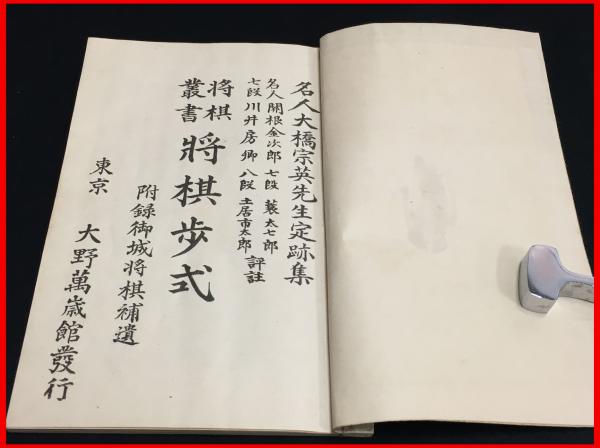 名人大橋宗英先生定跡集
名人関根金次郎 七段 蓑太七郎
七段川井房卿 八段 土居市太郎 評註
将棋叢書 將棋歩式
附録御城将棋補遺
東京 大野萬歳館發行